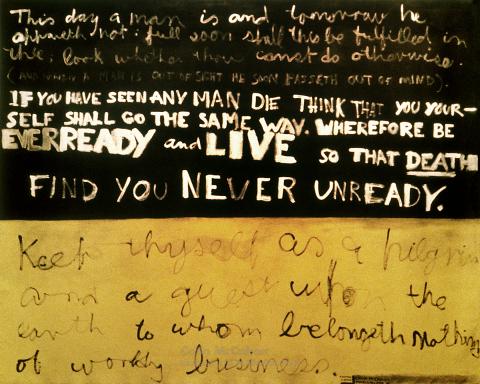 This day a man is and tomorrow he
appeareth not: full soon shall this be fulfilled in
thee; look whether thou canst do otherwise.
(AND WHEN A MAN IS OUT OF SIGHT HE SOON PASSETH OUT OF MIND).
IF YOU HAVE SEEN ANY MAN DIE THINK THAT YOU YOUR-
SELF SHALL GO THE SAME WAY. WHEREFORE BE
EVERREADY and LIVE SO THAT DEATH
FIND YOU NEVER UNREADY.
Keep thyself as a pilgrim
and a guest upon the
earth to whom belongeth nothing
of worldly business.